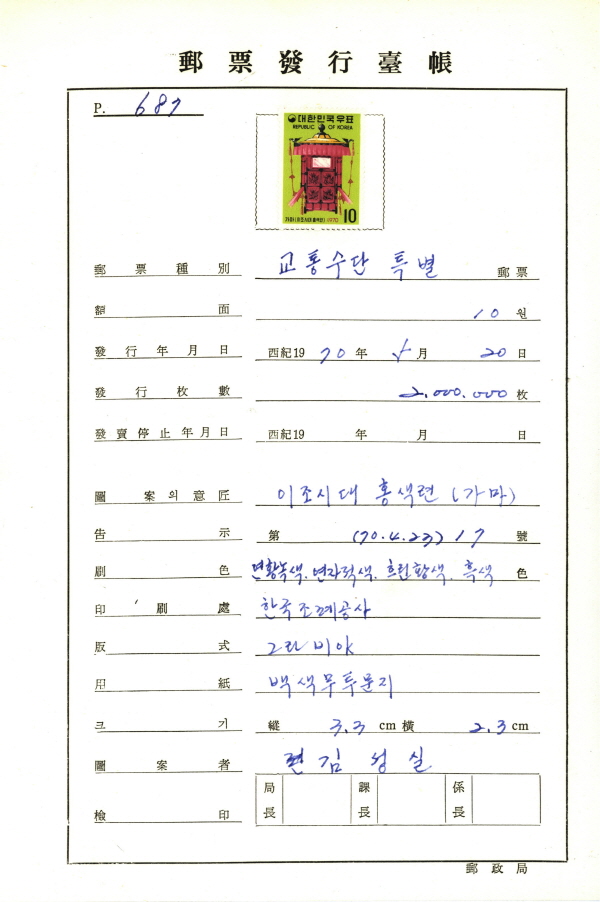 郵票發行臺帳
P. 687
대한민국우표
REPUBLIC OF KOREA
1970 10
郵票種別 교통수단 특별 郵票
額面 10 원
發行年月日 西紀19 70 年 5 月 20 日
發行枚數 2,000,000 枚
發賣停止年月日 西紀19 年 月 日
圖案의意匠 이조시대 홍색련 (가마)
告示 第 (70.4.23) 17 號
刷色 연황녹색, 연자적색, 흐린황색, 흑색 色
印刷處 한국조폐공사
版式 그라비아
用紙 백색무투문지
크기 縱 3.3 cm 橫 2.3 cm
圖案者 김성실
檢印 局長 課長 係長
郵政局